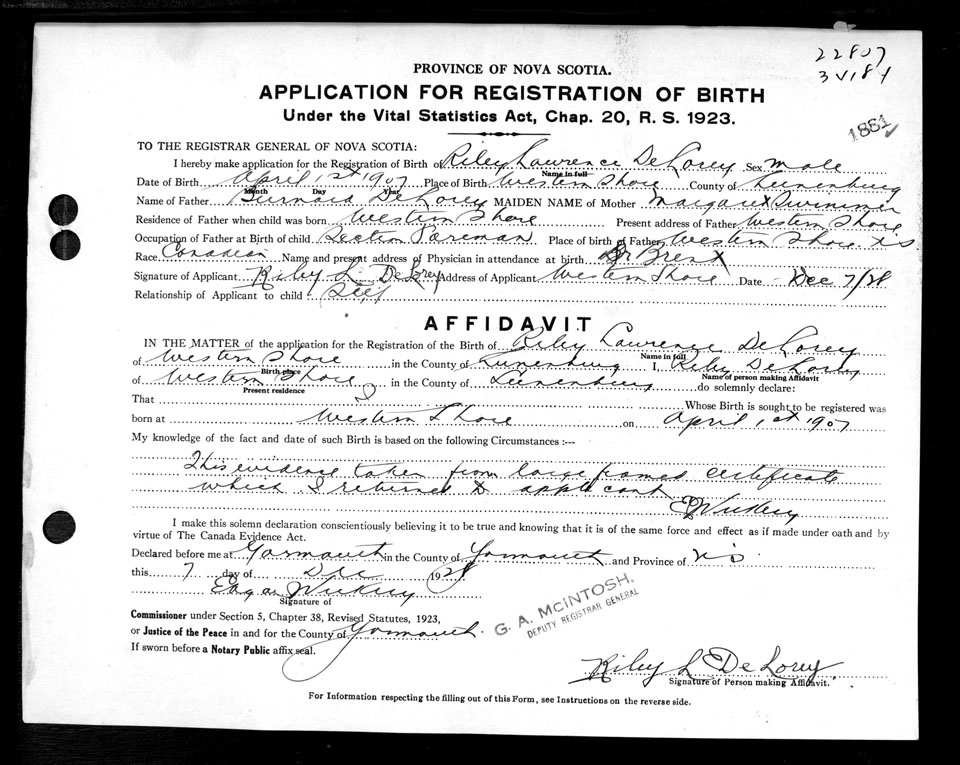 22807
3V184
1881
PROVINCE OF NOVA SCOTIA.
APPLICATION FOR REGISTRATION OF BIRTH
Under the Vital Statistics Act, Chap. 20, R. S. 1923.
TO THE REGISTRAR GENERAL OF NOVA SCOTIA:
I hereby make application for the Registration of Birth of Riley Lawrence DeLorey Sex male
Name in full
Date of Birth April 1st 1907 Place of Birth Western Shore County of Lunenburg
Month Day Year
Name of Father Burnard DeLorey MAIDEN NAME of Mother Margaret Swimmer
Residence of Father when child was born Western Shore Present address of Father Western Shore
Occupation of Father at Birth of child Section Foreman Place of birth of Father Western Shore NS
Race Canadian Name and present address of Physician in attendance at birth Dr Brent
Signature of Applicant Riley L. DeLorey Address of Applicant Western Shore Date Dec 7/28
Relationship of Applicant to child Self
AFFIDAVIT
IN THE MATTER of the application for the Registration of the Birth of Riley Lawrence DeLorey
Name in full
of Western Shore in the County of Lunenburg I, Riley DeLorey
Birth place Name of person making Affidavit
of Western Shore in the County of Lunenburg do solemnly declare:
Present residence
That I Whose Birth is sought to be registered was
born at Western Shore on April 1st 1907
My knowledge of the fact and date of such Birth is based on the following Circumstances :---
This evidence taken from large framed certificate
which I returned to applicant
I make this solemn declaration conscientiously believing it to be true and knowing that it is of the same force and effect as if made under oath and by
virtue of The Canada Evidence Act.
Declared before me at Yarmouth in the County of Yarmouth and Province of NS
this 7 day of Dec 1928
Edgar
Signature of
Commissioner under Section 5, Chapter 38, Revised Statutes, 1923,
or Justice of the Peace in and for the County of Yarmouth.
If sworn before a Notary Public affix seal.
G. A. McINTOSH,
DEPUTY REGISTRAR GENERAL
Riley L DeLorey
Signature of Person making Affidavit.
For Information respecting the filling out of this Form, see Instructions on the reverse side.